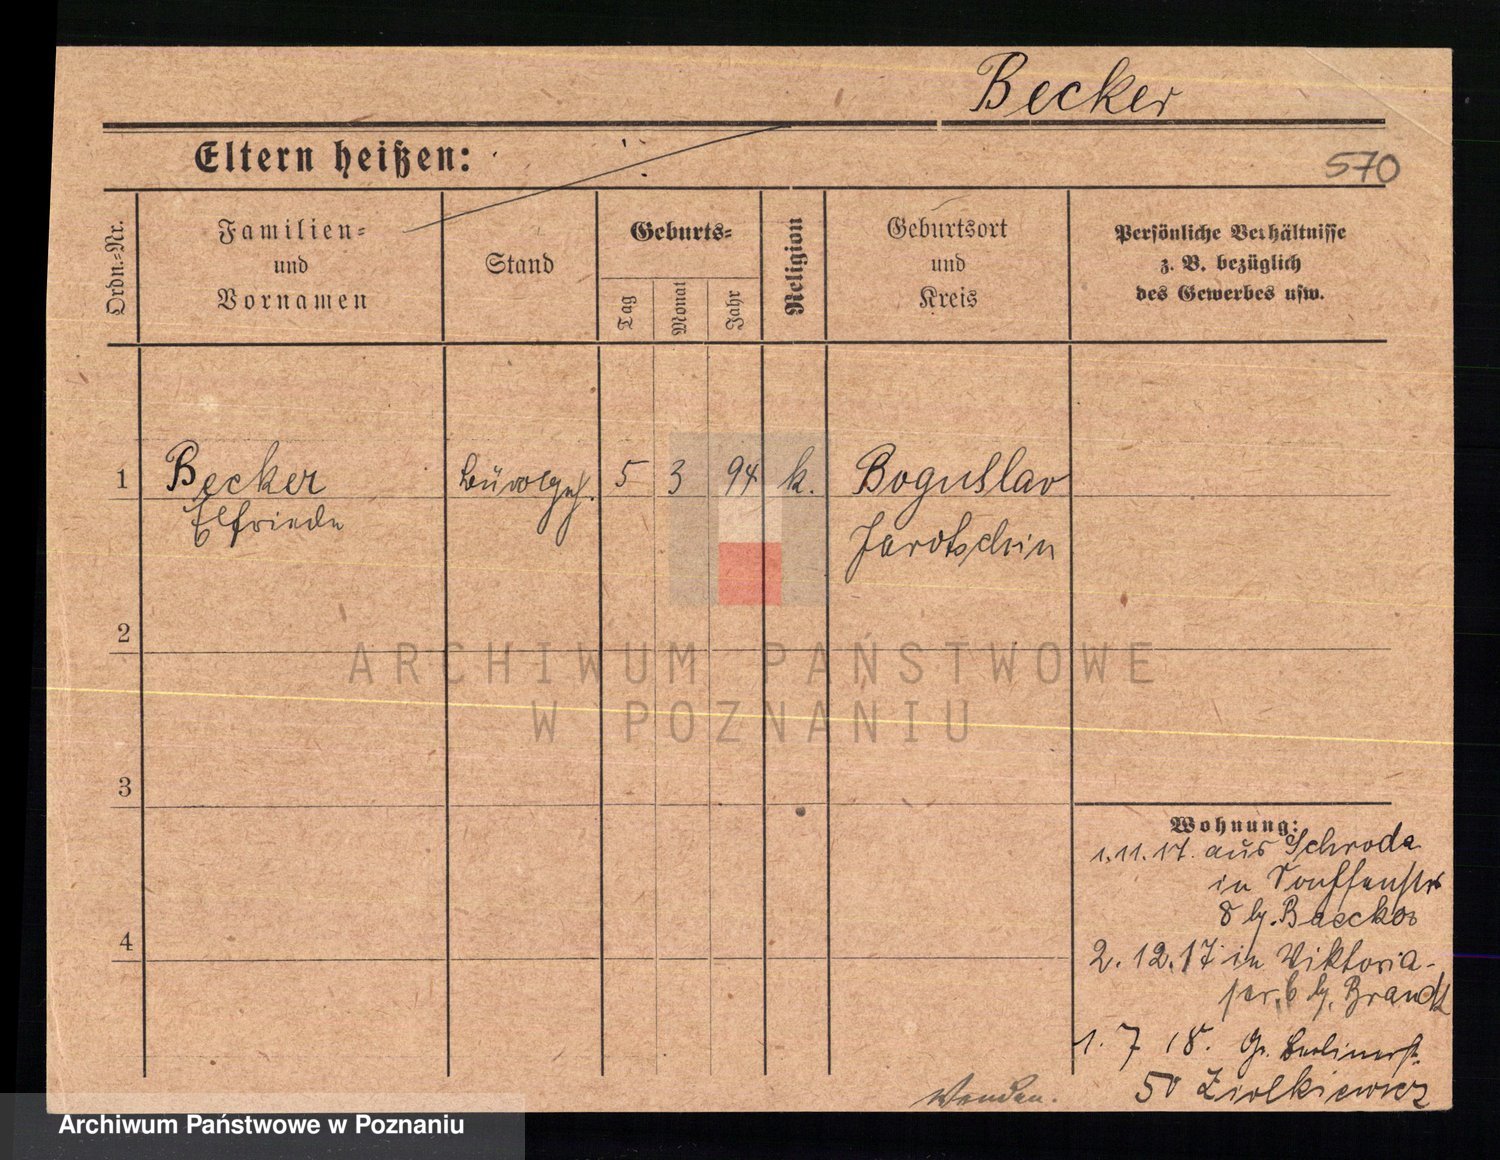 Becker
Eltern heißen:
570
Ordn.=Nr.
Familien=
und
Vornamen
Stand
Geburts=
Tag
Monat
Jahr
Religion
Geburtsort
und
Kreis
Persönliche Verhältnisse
z. B. bezüglich
des Gewerbes usw.
1 Becker 5 3 94 k. Boguslav
Elfriede Jarotschin
2
3
4
Wohnung:
1.11.17. aus Schroda
in
8 b/.
2.12.17 in Viktoria-
6 b/. Brandt
1.7 18. Gr. Berlinerst.
50 Ziolkiewicz
Wenden.
ARCHIWUM PAŃSTWOWE
W POZNANIU
Archiwum Państwowe w Poznaniu